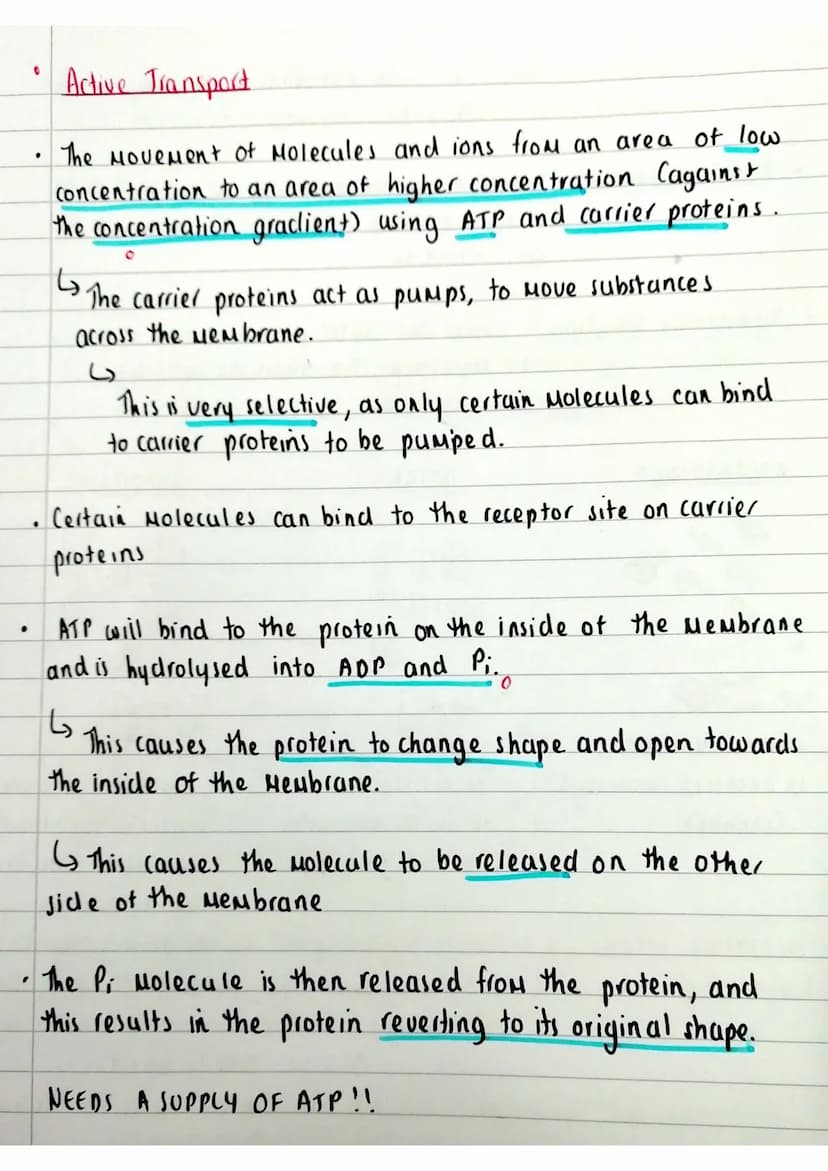 Active Transport
• The movement of molecules and ions from an area of low
concentration to an area of higher concentration (against
the concentration gradient) using ATP and carrier proteins.
↳ The carrier proteins act as pumps, to move substances
across the membrane.
↳
This is very selective, as only certain molecules can bind
to carrier proteins to be pumped.
• Certain molecules can bind to the receptor site on carrier
proteins
• ATP will bind to the protein on the inside of the membrane
and is hydrolysed into ADP and Pi.
↳ This causes the protein to change shape and open towards
the inside of the membrane.
↳ This causes the molecule to be released on the other
side of the membrane
• The Pi molecule is then released from the protein, and
this results in the protein reverting to its original shape.
NEEDS A SUPPLY OF ATP!!